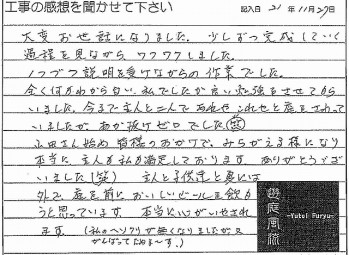 工事の感想を聞かせて下さい
記入日 21年11月29日
大変お世話になりました。少しずつ完成していく
過程を見ながらワクワクしました。
1つづつ説明を受けながらの作業でした。
全くわからない私でしたが良い勉強をさせてもら
いました。今まで主人と二人であれやこれやと庭をさわって
いましたが、あか抜けゼロでした(笑)
山田さん始め皆様のおかげで、みちがえる様になり
本当に、主人も私も満足しております。ありがとうござ
いました(笑) 主人と子供達と夏には
外で、庭を前に、おいしいビールを飲も
うと思っています。本当に心がいやされ
ます。(私のヘソクリが無くなりましたが又
がんばってためま〜す。)
遊庭風流
-Yutei Furyu-